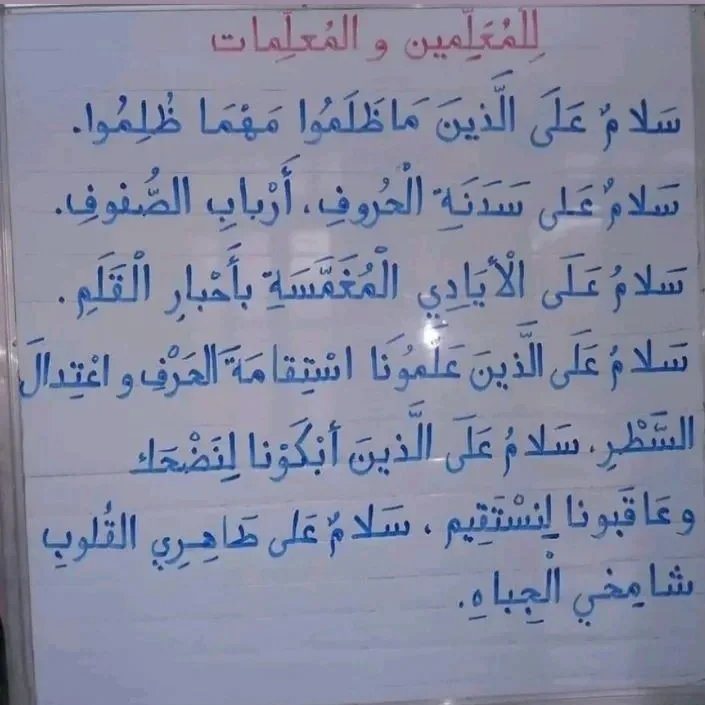 لِلْمُعَلِّمين و المُعلِّمات
سَلامٌ عَلَى الَّذينَ مَا ظَلَمُوا مَهْمَا ظُلِمُوا.
سَلامٌ عَلى سَدَنَةِ الْحُروفِ، أَرْبابِ الصُّفوفِ.
سَلامُ عَلَى الْأَيَادِي الْمُغَمَّسَةِ بِأَحْبارِ الْقَلَمِ.
سَلامُ عَلَى الَّذينَ عَلَّمُونَا اسْتِقامَةَ الحَرْفِ و اعْتِدالَ
السَّطْرِ. سَلامُ عَلَى الَّذينَ أبْكَوْنا لِنَضْحَك
و عَاقَبونا لِنسْتَقِيم ، سَلامٌ عَلى طَاهِرِي القُلوبِ
شامِخي الْجِباهِ.